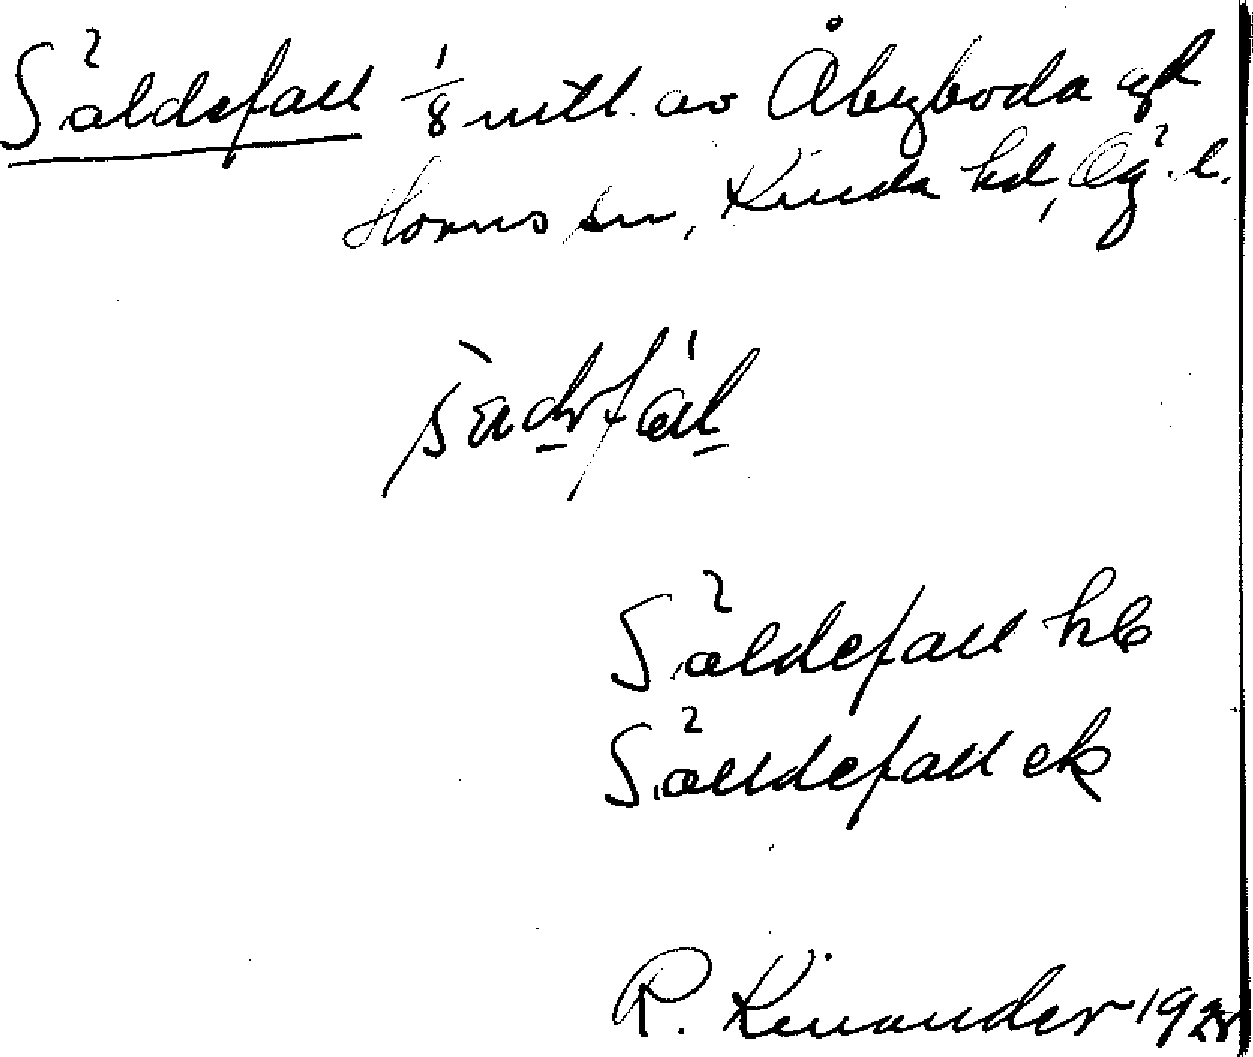 Såldefall 1/8 mtl. av Åbyboda gd
Horns sn, Kinda hd, Ög. l.
Såldefall hb
Sålldefall ek
R. Kinander 192